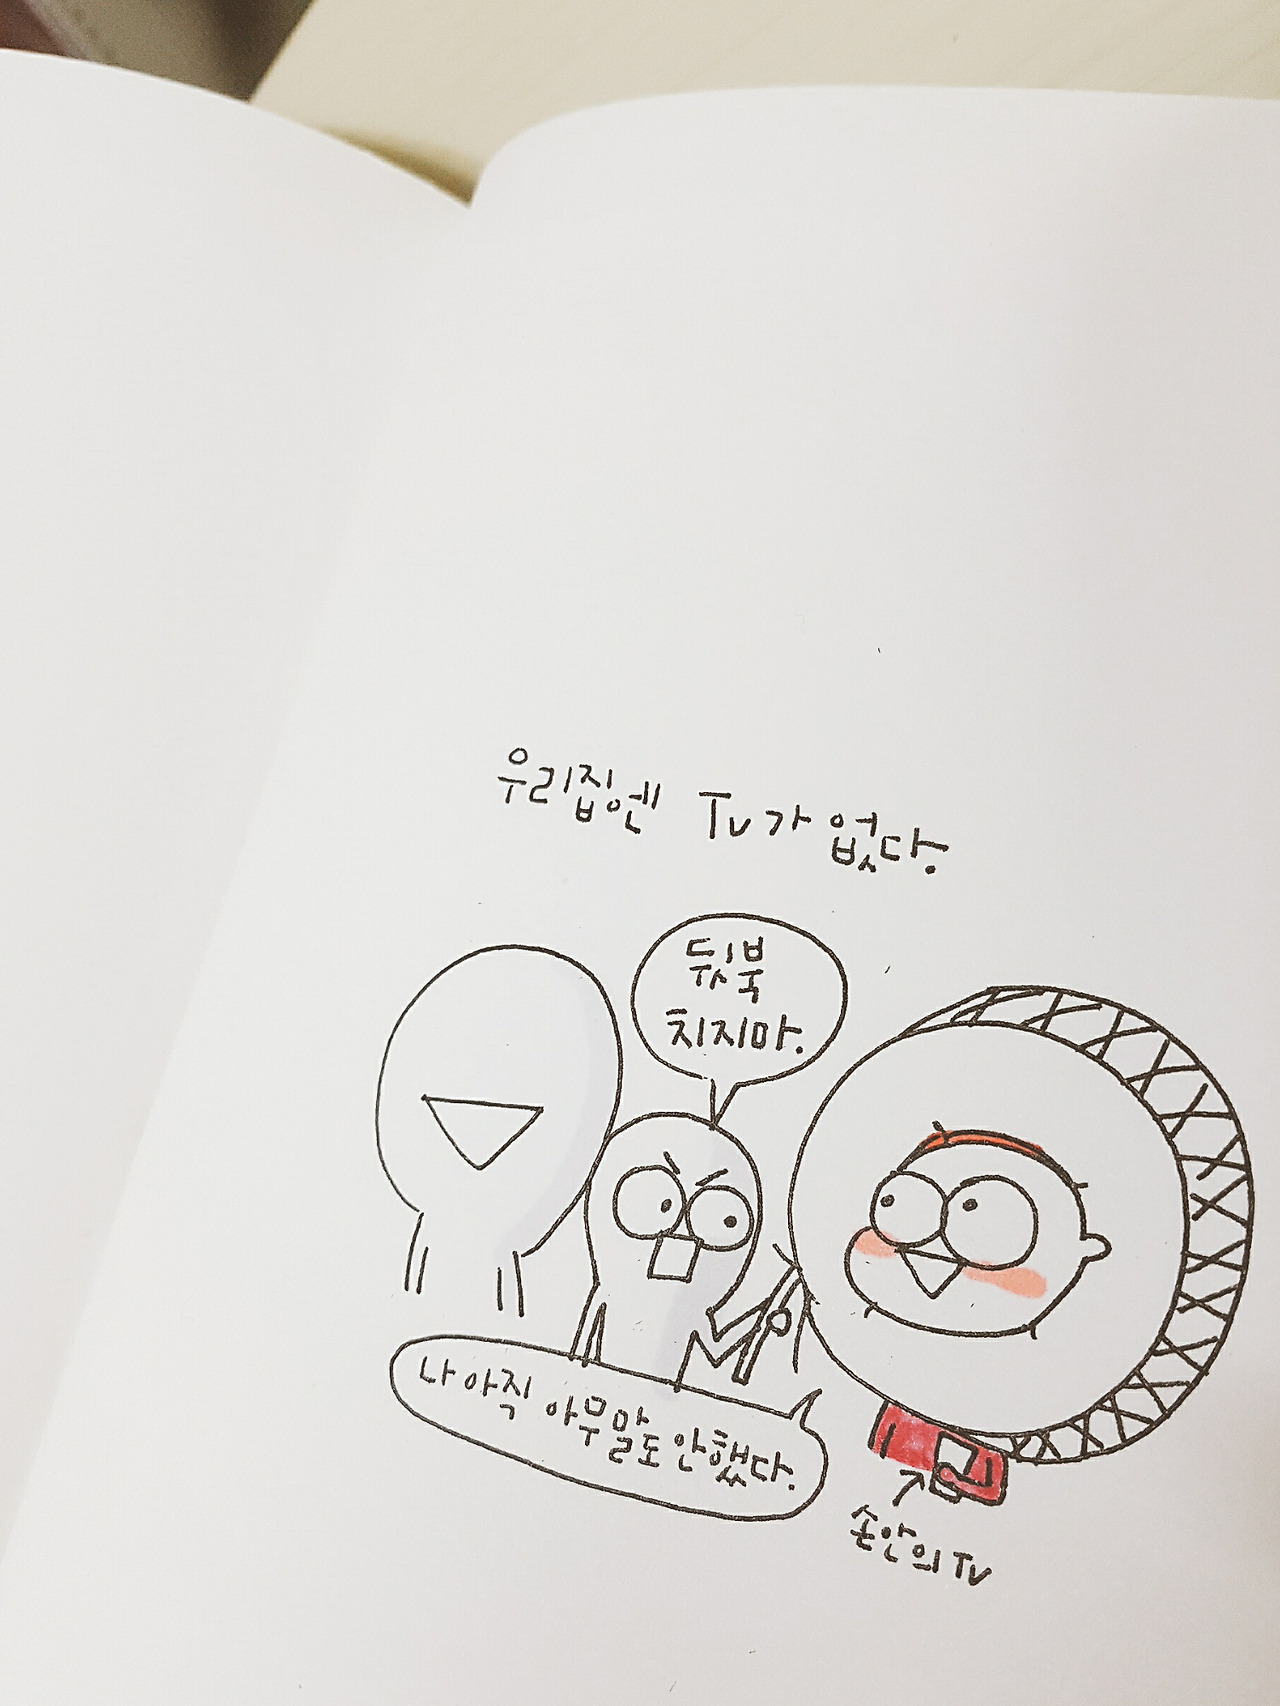 우리집엔 Tv가 없다.
뒷북
치지마.
나 아직 아무말도 안했다.
손안의 Tv